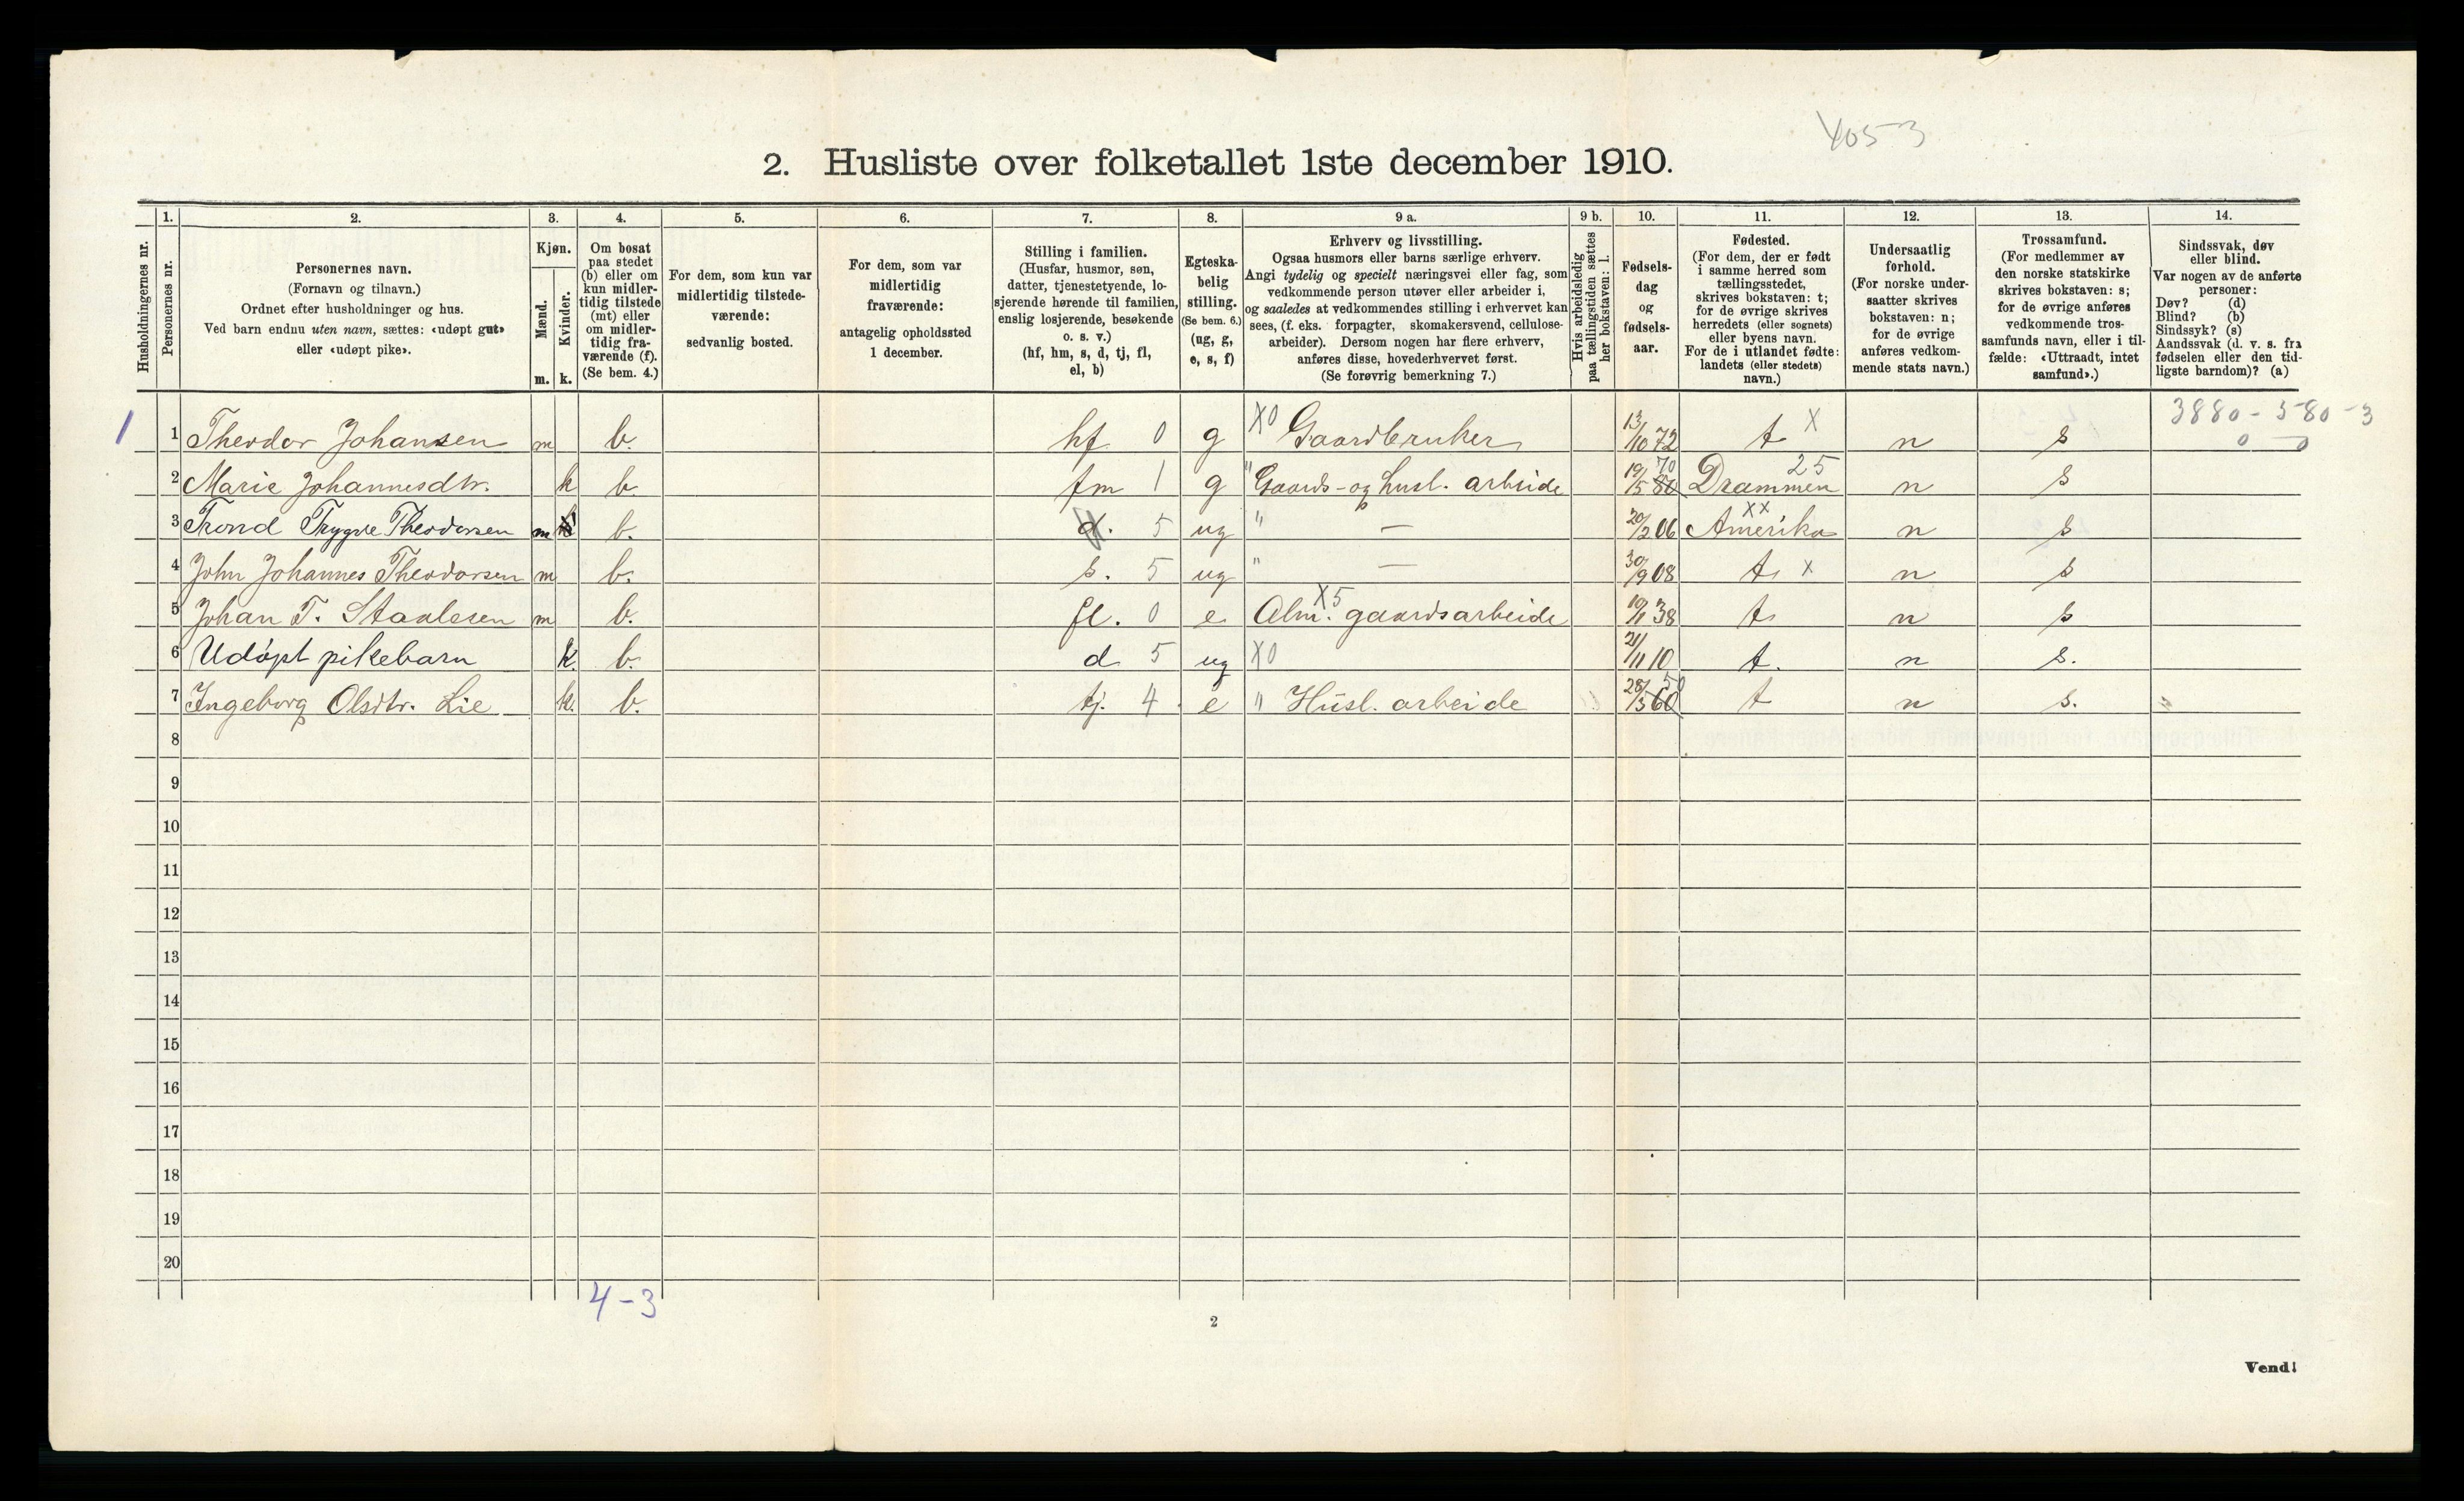 4053
2. Husliste over folketallet 1ste december 1910.
Husholdningernes nr.
1.
Personernes nr.
2.
Personernes navn.
(Fornavn og tilnavn.)
Ordnet efter husholdninger og hus.
Ved barn endnu uten navn, sættes: «udøpt gut»
eller «udøpt pike».
3.
Kjøn.
Mænd.
m.
Kvinder.
k.
4.
Om bosat
paa stedet
(b) eller om
kun midler-
tidig tilstede
(mt) eller
om midler-
tidig fra-
værende (f).
(Se bem. 4.)
5.
For dem, som kun var
midlertidig tilstede-
værende:
sedvanlig bosted.
6.
For dem, som var
midlertidig
fraværende:
antagelig opholdssted
1 december.
7.
Stilling i familien.
(Husfar, husmor, søn,
datter, tjenestetyende, lo-
sjerende hørende til familien,
enslig losjerende, besøkende
o. s. v.)
(hf, hm, s, d, tj, fl,
el, b)
8.
Egteska-
belig
stilling.
(Se bem. 6.)
(ug, g,
e, s, f)
9 a.
Erhverv og livsstilling.
Ogsaa husmors eller barns særlige erhverv.
Angi tydelig og specielt næringsvei eller fag, som
vedkommende person utøver eller arbeider i,
og saaledes at vedkommendes stilling i erhvervet kan
sees, (f. eks. forpagter, skomakersvend, cellulose-
arbeider). Dersom nogen har flere erhverv,
anføres disse, hovederhvervet først.
(Se forøvrig bemerkning 7.)
9 b.
Hvis arbeidsledig
paa tællingstiden sættes
her bokstaven: l.
10.
Fødsels-
dag
og
fødsels-
aar.
11.
Fødested.
(For dem, der er født
i samme herred som
tællingsstedet,
skrives bokstaven: t;
for de øvrige skrives
herredets (eller sognets)
eller byens navn.
For de i utlandet fødte:
landets (eller stedets)
navn.)
12.
Undersaatlig
forhold.
(For norske under-
saatter skrives
bokstaven: n;
for de øvrige
anføres vedkom-
mende stats navn.)
13.
Trossamfund.
(For medlemmer av
den norske statskirke
skrives bokstaven: s;
for de øvrige anføres
vedkommende tros-
samfunds navn, eller i til-
fælde: «Uttraadt, intet
samfund».)
14.
Sindssvak, døv
eller blind.
Var nogen av de anførte
personer:
Døv? (d)
Blind? (b)
Sindssyk? (s)
Aandssvak (d. v. s. fra
fødselen eller den tid-
ligste barndom)? (a)
3880 - 580 - 3
0 0
1 1 Theodor Johansen m b. hf 0 g X0 Gaardbruker 13/10 72 t X n s
2 Marie Johannesdtr. k b. hm 1 g " Gaards- og husl. arbeide 19/5 80 70 Drammen 25 n s
3 Trond Trygve Theodorsen m k b. d. 5 ug " — 20/2 06 Amerika XX n s
4 John Johannes Theodorsen m b. s. 5 ug " — 30/9 08 t. X n s
5 Johan T. Staalesen m b. fl. 0 e X5 Alm. gaardsarbeide 38 t n s
6 Udøpt pikebarn k. b. d 5 ug X0 21/11 10 t. n s.
7 Ingeborg Olsdtr. Lie k. b. tj. 4 e " Husl. arbeide 28/3 60 50 t n s.
8
9
10
11
12
13
14
15
16
17
18
19
20
4-3
2
Vend!